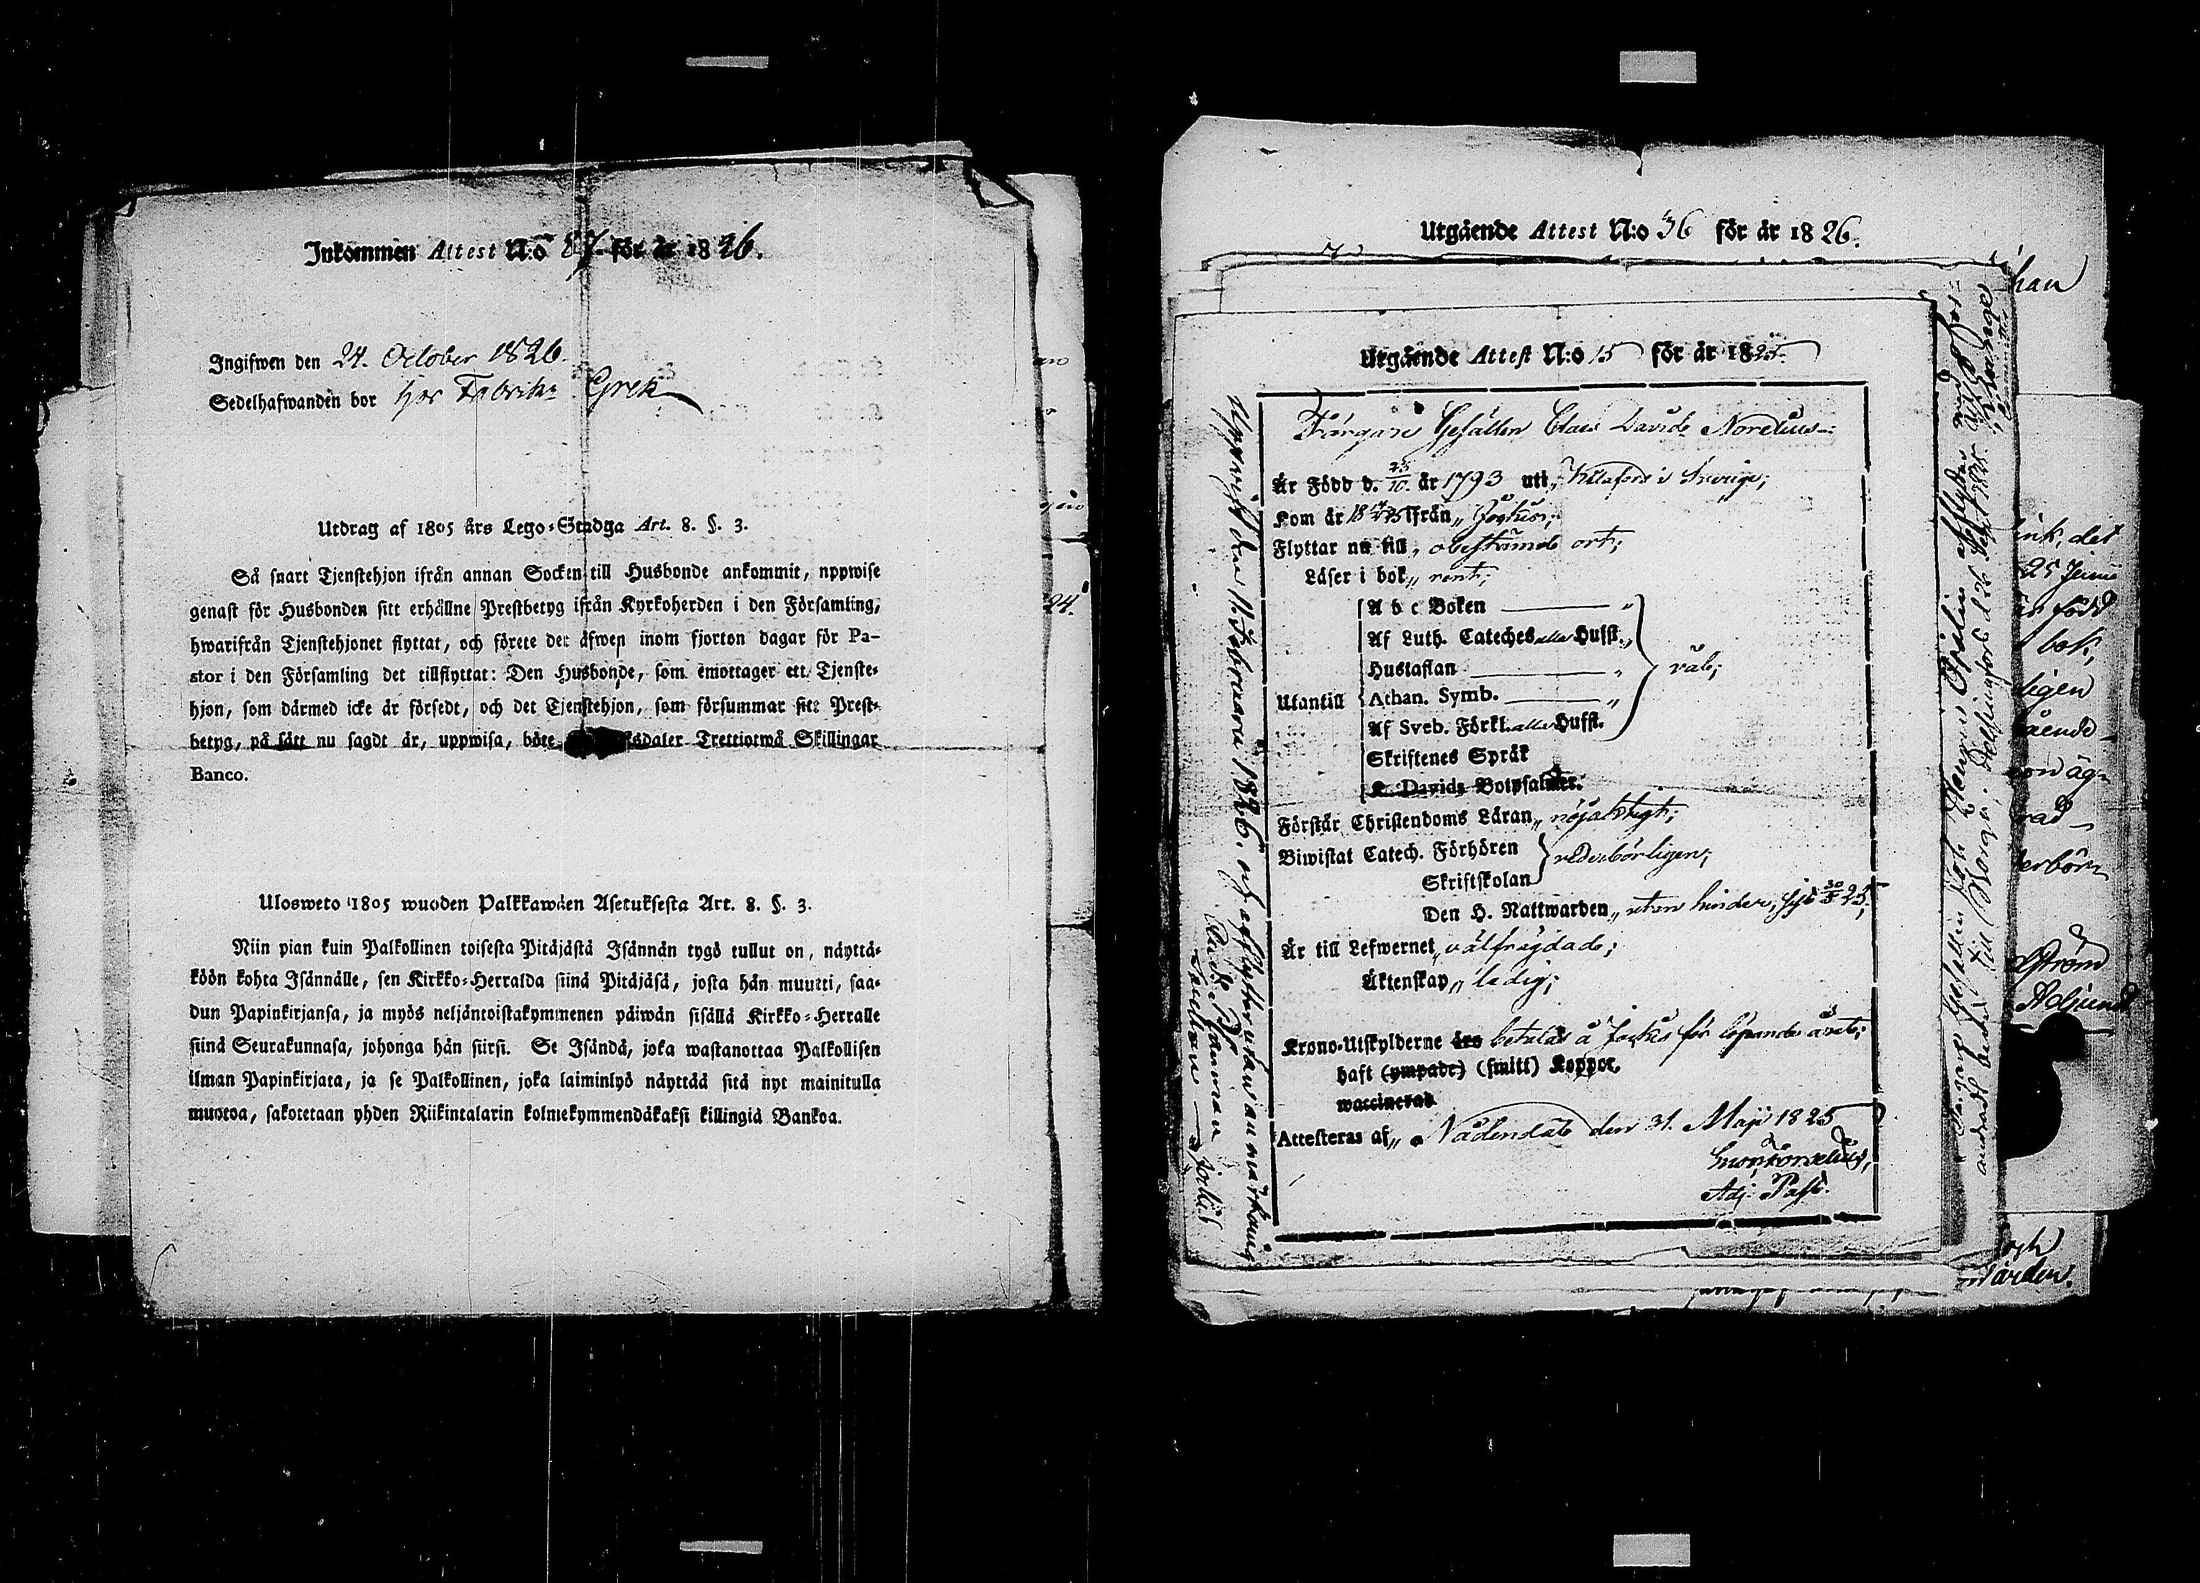 Inkommen Attest N:o 87 för år 1826.
Ingifwen den 24. October 1826.
Sedelhafwanden bor hos Fabrikr Grek
Utdrag af 1805 års Lego-Stadga Art. 8. §. 3.
Så snart Tjenstehjon ifrån annan Socken till Husbonde ankommit, uppwise
genast för Husbonden sitt erhållne Prestbetyg ifrån Kyrkoherden i den Församling,
hwarifrån Tjenstehjonet flyttat, och förete det äfwen inom fjorton dagar för Pa-
stor i den Församling det tillflyttat: Den Husbonde, som emottager ett Tjenste-
hjon, som därmed icke är försedt, och det Tjenstehjon, som försummar sitt Prest-
betyg, på sätt nu sagdt är, uppwisa, böte Trettiotwå Skillingar
Banco.
Ulosweto 1805 wuoden Palkkawäen Asetuksesta Art. 8. §. 3.
Niin pian kuin Palkollinen toisesta Pitäjästä Isännän tygö tullut on, näyttä-
köön kohta Isännälle, sen Kirkko-Herralda siinä Pitäjäsä, josta hän muutti, saa-
dun Papinkirjansa, ja myös neljäntoistakymmenen päiwän sisällä Kirkko-Herralle
siinä Seurakunnasa, johonga hän siirsi. Se Isändä, joka wastanottaa Palkollisen
ilman Papinkirjata, ja se Palkollinen, joka laiminlyö näyttää sitä nyt mainitulla
muotoa, sakotetaan yhden Riikintalarin kolmekymmendäkaksi killingiä Bankoa.
Utgående Attest N:o 36 för år 1826.
Utgående Attest N:o 15 för år 1825.
Färgare Gesällen Claes David Norelius
Är Född d. 25/10. år 1793 uti, Killafors i Sverige;
Kom år 1825 ifrån, Jockis;
Flyttar nu till, obestämd ort;
Läser i bok, rent;
Utantill
A b c Boken
Af Luth. Cateches alla Husst.
Hustaflan
Athan. Symb.
Af Sveb. Förkl. alla Husst.
Skriftenes Språk
K. Davids Botpsalmer.
väl;
Förstår Christendoms Läran, nöjaktigt;
Biwistat Catech. Förhören
Skriftskolan
vederbörligen;
Den H. Nattwarden, utan hinder, sist 30/5 25;
Är till Lefwernet, välfrägdad;
Äktenskap, ledig;
Krono-Utskylderne års betalas å Jockis för löpande året;
haft (ympade) (smitt) Koppor.
waccinerad
Attesteras af, Nådendal den 31. Maji 1825
Adj. Past.
Uppvist den 11 Februarii 1826. och afflyttar utan anmärkning
han
ink, det
25 Junii
född
bok,
ligen
ående
erbör
Adjunct
och